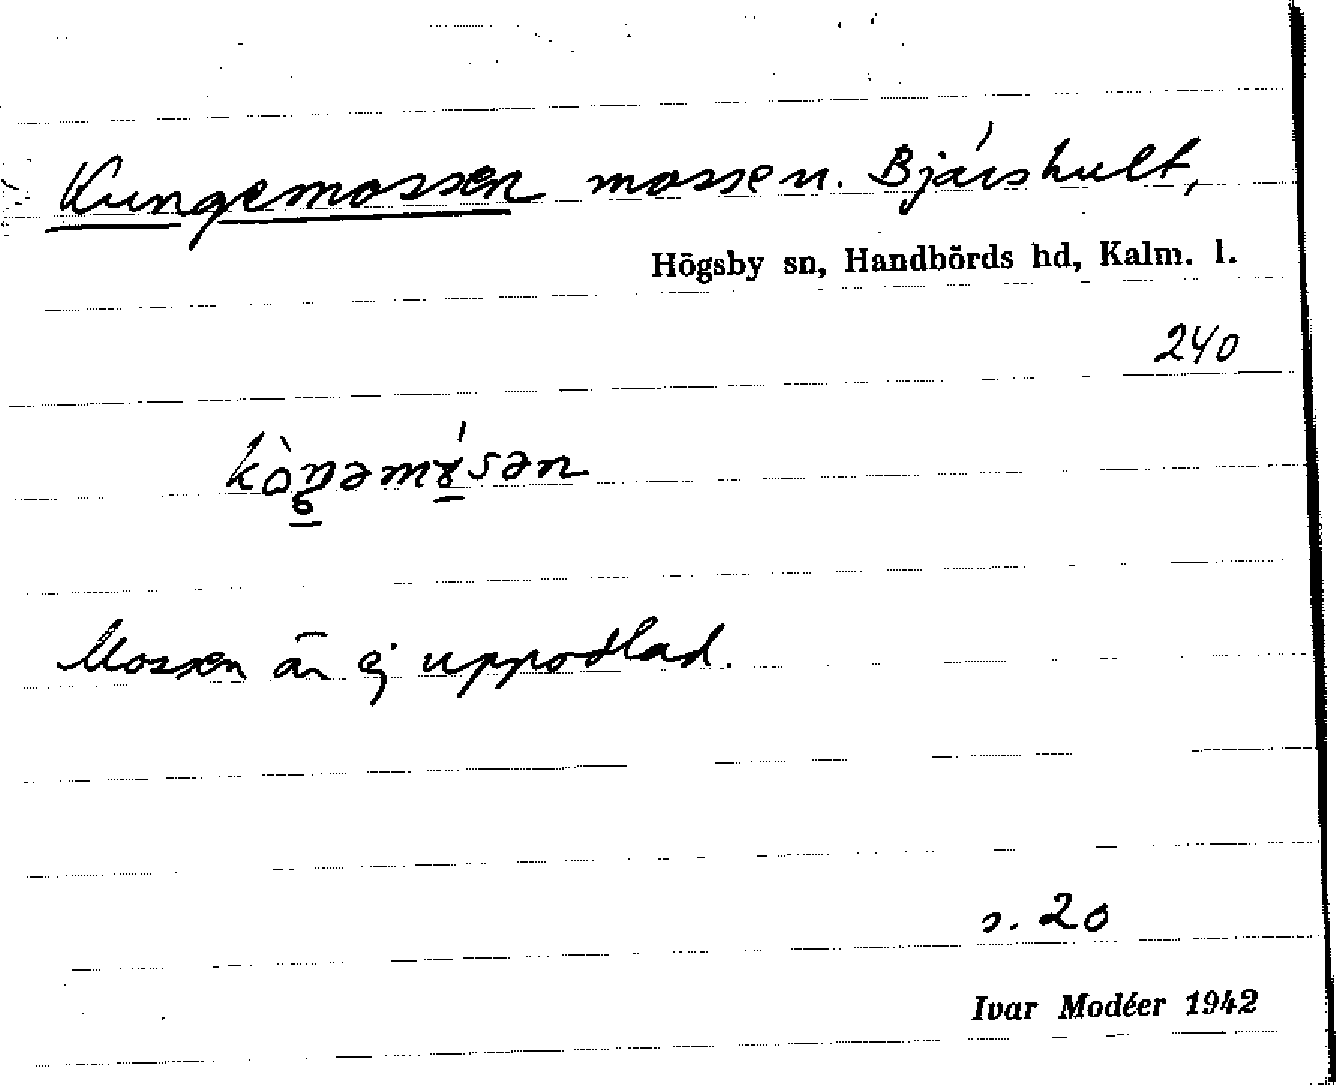 Kungemossen mosse n. Bjärshult,
Högsby sn, Handbörds hd, Kalm. l.
240
Mossen är ej uppodlad.
s. 20
Ivar Modéer 1942